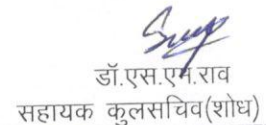 डॉ.एस.एन.राव
सहायक कुलसचिव(शोध)